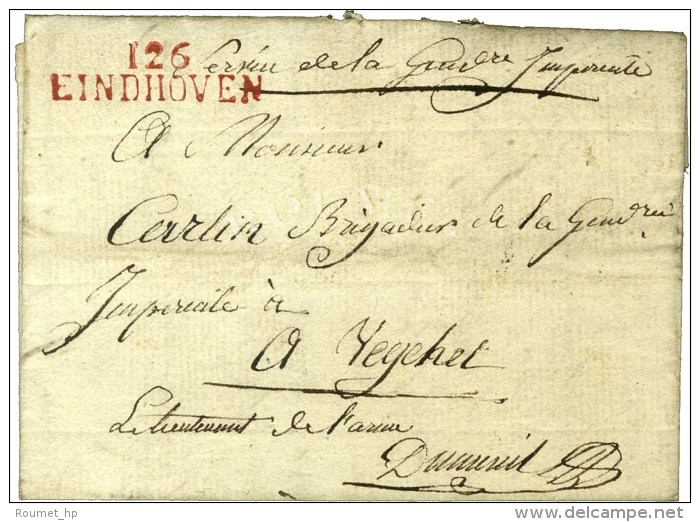 126
EINDHOVEN
Service de la Gendrie Imperiale
A Monsieur
Carlin Brigadier de la Gendrie
Imperiale à
A Vegehel
Le lieutenant de l'arme
Dumenil
Roumet_hp
delcampe.net